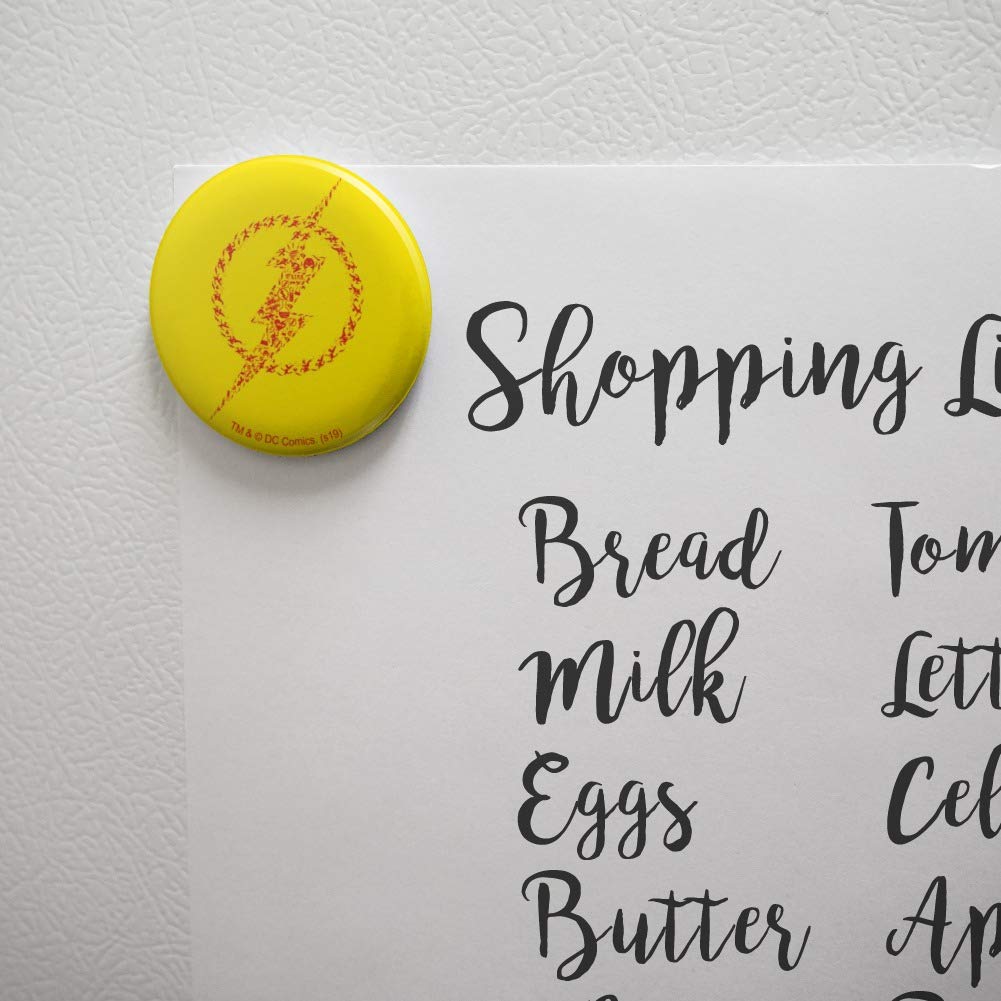 TM & © DC Comics. (s19)
Shopping Li
Bread Tom
Milk Lett
Eggs Cel
Butter Ap